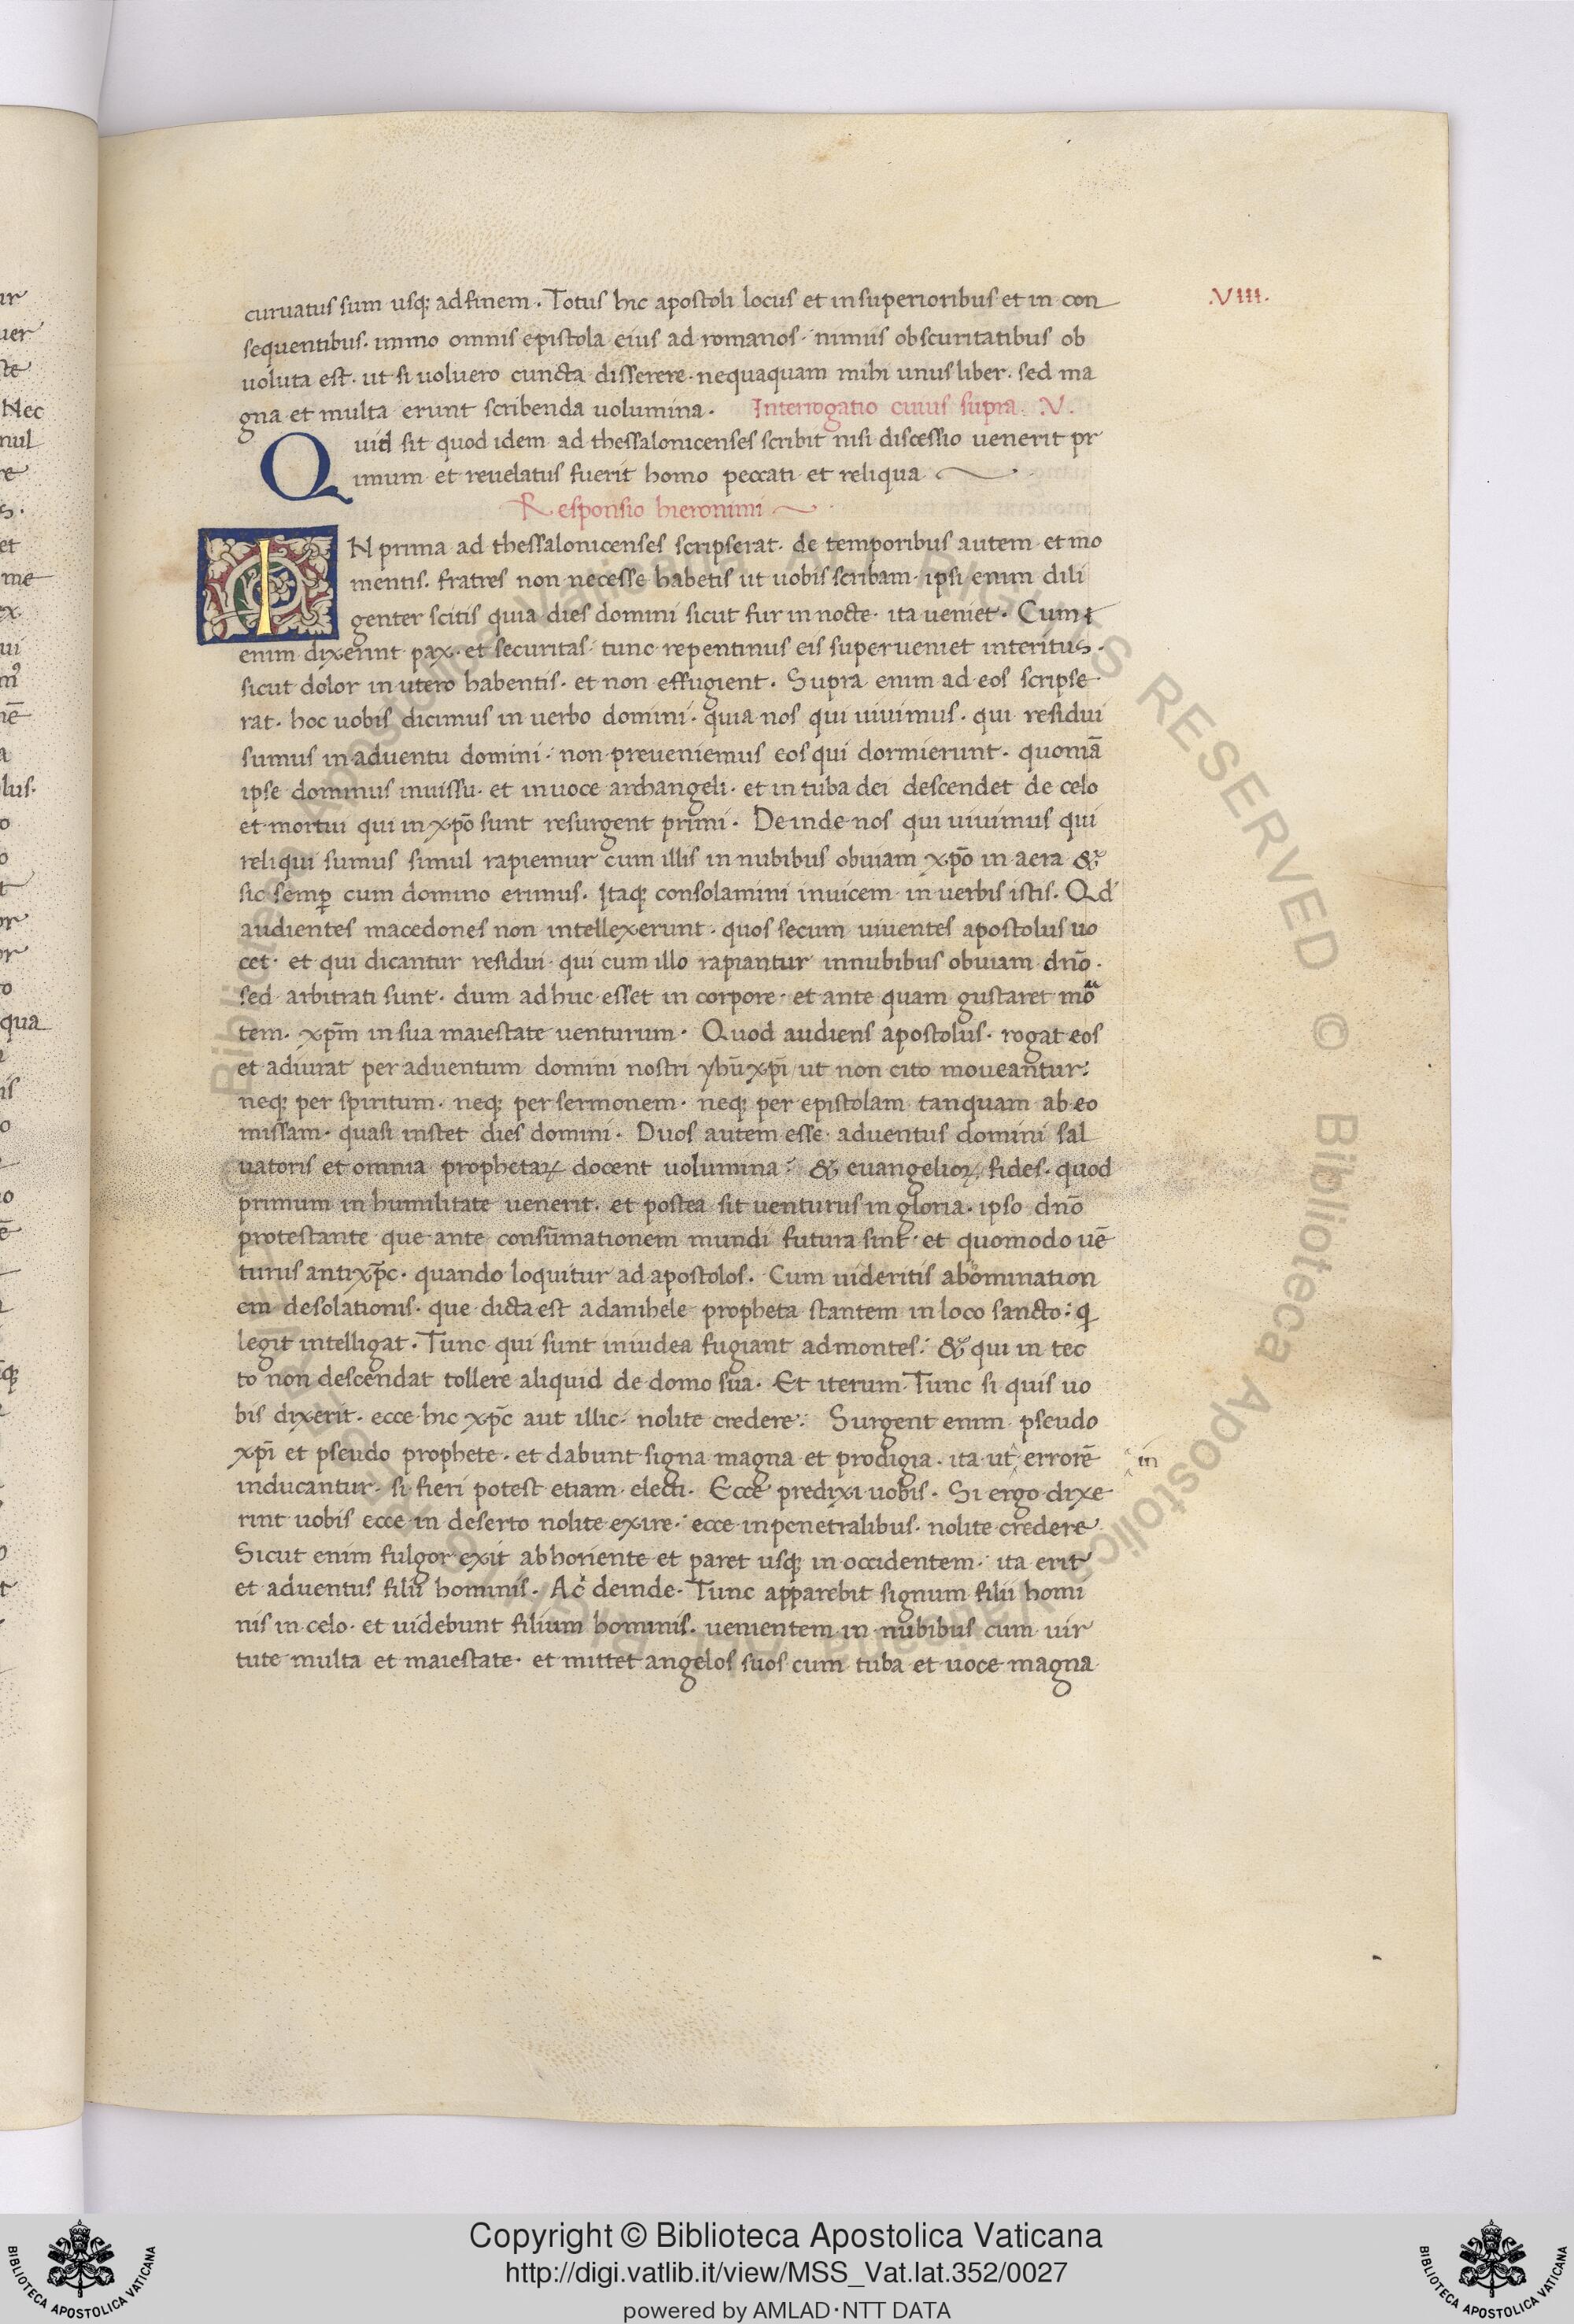 .VIII.
curuatus sum usq; ad finem. Totus hic apostoli locus et in superioribus et in con
sequentibus. immo omnis epistola eius ad romanos. nimiis obscuritatibus ob
uoluta est. ut si uoluero cuncta disserere. nequaquam mihi unus liber. sed ma
gna et multa erunt scribenda uolumina. Interrogatio cuius supra. V.
Quid sit quod idem ad thessalonicenses scribit nisi discessio uenerit pr
imum et reuelatus fuerit homo peccati et reliqua
Responsio hieronimi
IN prima ad thessalonicenses scripserat. de temporibus autem et mo
mentis. fratres non necesse habetis ut uobis scribam. ipsi enim dili
genter scitis quia dies domini sicut fur in nocte. ita ueniet. Cum
enim dixerint pax. et securitas. tunc repentinus eis superueniet interitus.
sicut dolor in utero habentis. et non effugient. Supra enim ad eos scripse
rat. hoc uobis dicimus in uerbo domini. quia nos qui uiuimus. qui residui
sumus in aduentu domini. non preueniemus eos qui dormierunt. quoniā
ipse dominus in iussu. et in uoce archangeli. et in tuba dei descendet de celo
et mortui qui in xp̄o sunt resurgent primi. Deinde nos qui uiuimus qui
reliqui sumus simul rapiemur cum illis in nubibus obuiam xp̄o in aera &
sic semp̄ cum domino erimus. Itaq; consolamini inuicem in uerbis istis. Qd'
audientes macedones non intellexerunt. quos secum uiuentes apostolus uo
cet. et qui dicantur residui. qui cum illo rapiantur in nubibus obuiam dn̄o.
sed arbitrati sunt. dum adhuc esset in corpore. et ante quam gustaret mo
tem. xp̄m in sua maiestate uenturum. Quod audiens apostolus. rogat eos
et adiurat per aduentum domini nostri yhū xp̄i ut non cito moueantur:
neq; per spiritum. neq; per sermonem. neq; per epistolam tanquam ab eo
missam. quasi instet dies domini. Duos autem esse aduentus domini sal
uatoris et omnia prophetaꝝ docent uolumina: & euangelioꝝ fides. quod
primum in humilitate uenerit. et postea sit uenturus in gloria. ipso dn̄o
protestante que ante consūmationem mundi futura sint. et quomodo uē
turus antixp̄c. quando loquitur ad apostolos. Cum uideritis abomination
em desolationis. que dicta est a danihele propheta stantem in loco sancto: q
legit intelligat. Tunc qui sunt in iudea fugiant ad montes: & qui in tec
to non descendat tollere aliquid de domo sua. Et iterum. Tunc si quis uo
bis dixerit. ecce hic xp̄c aut illic. nolite credere. Surgent enim pseudo
xp̄i et pseudo prophete. et dabunt signa magna et prodigia. ita ut errorē
in
inducantur. si fieri potest etiam electi. Ecce predixi uobis. Si ergo dixe
rint uobis ecce in deserto nolite exire. ecce in penetralibus. nolite credere
Sicut enim fulgor exit ab horiente et paret usq; in occidentem. ita erit
et aduentus filii hominis. Ac deinde. Tunc apparebit signum filii homi
nis in celo. et uidebunt filium hominis. uenientem in nubibus cum uir
tute multa et maiestate. et mittet angelos suos cum tuba et uoce magna
Copyright © Biblioteca Apostolica Vaticana
http://digi.vatlib.it/view/MSS_Vat.lat.352/0027
powered by AMLAD·NTT DATA